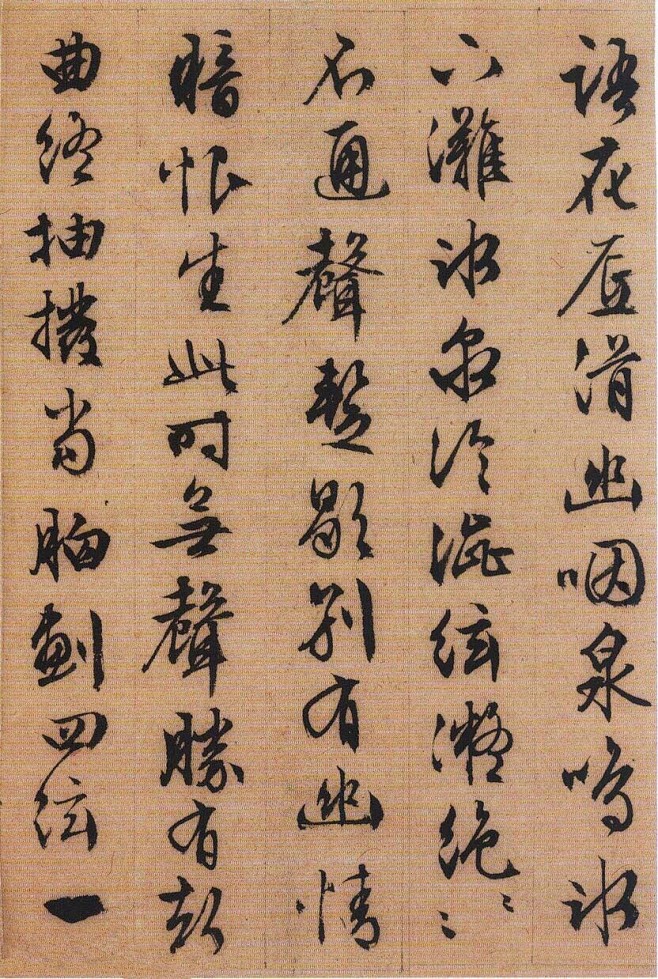 語花底滑幽咽泉鳴冰
下灘冰泉冷澀絃凝絶〻〻
不通聲暫歇別有幽情
暗恨生此時無聲勝有
曲終抽撥當胸劃四絃一